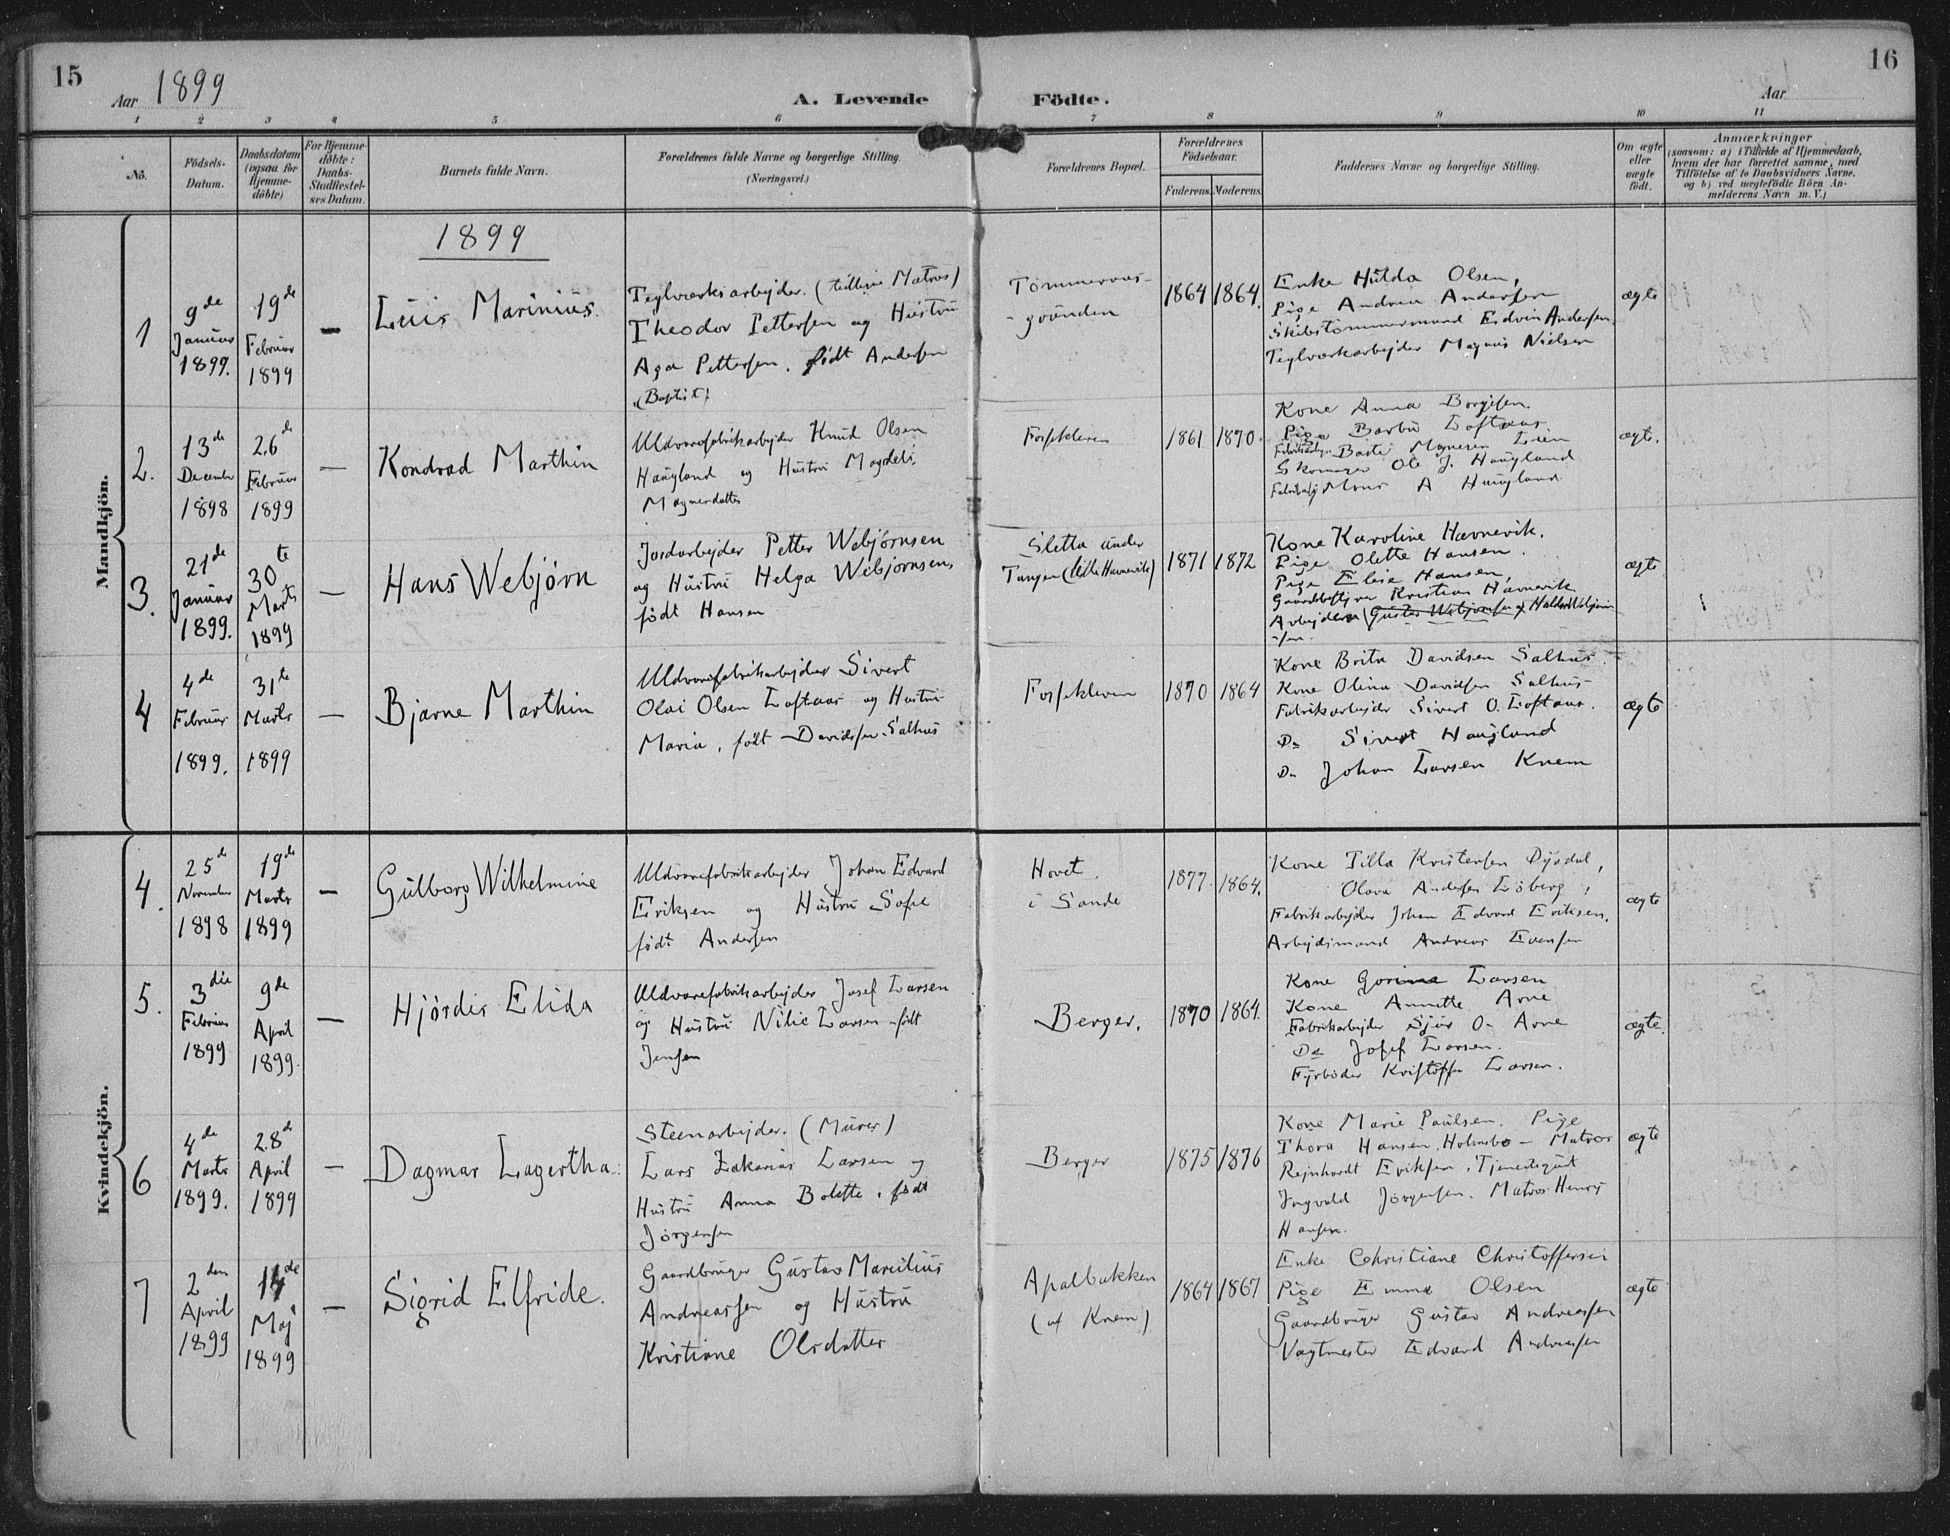 15
Aar 1899
A. Levende
Födte.
16
Aar
1 2 3 4 5 6 7 8 9 10 11
No.
Födsels-
Datum.
Daabsdatum
(ogsaa for
Hjemme-
döbte)
For Hjemme-
döbte:
Daabs-
Stadfæstel-
ses Datum.
Barnets fulde Navn.
Forældrenes fulde Navne og borgerlige Stilling.
(Næringsvei.)
Forældrenes Bopæl.
Forældrenes
Födselsaar.
Faderens. Moderens.
Faddernes Navne og borgerlige Stilling.
Om ægte
eller
uægte
födt.
Anmærkninger
(saasom: a) i Tilfælde af Hjemmedaab,
hvem der har forrettet samme, med
Tilföielse af to Daabsvidners Navne,
og b) ved uægtefödte Börn An-
melderens Navn m. V.)
Mandkjön.
1899
1
9de
Januar
1899.
19de
Februar
1899
–
Luis Marinius.
Teglværksarbejder. (tidligere Matros)
Theodor Pettersen og Hustru
Aga Pettersen. født Andersen
(Baptist)
Tømmeraas-
-grunden
1864 1864.
Enke Hulda Olsen,
Pige Andrea Andersen
Skibstømmermand Edvin Andersen,
Teglværkarbejder Magnus Nielsen
ægte
2.
13de
December
1898
26de
Februar
1899
–
Kondrad Marthin
Uldvarefabrikarbejder Knud Olsen
Haugland og Hustru Magdeli
Magnesdatter
Fossekleven
1861 1870.
Kone Anna Borgesen
Pige Barbu Loftaas.
Skomager Ole J. Haugland
Mons A Haugland
ægte.
3.
21de
Januar
1899.
30te
Marts
1899
–
Hans Webjørn
Jordarbejder Petter Webjørnsen
og Hustru Helga Webjørnsen,
født Hansen
Sletta under
Tangen (lille Havnevik)
1871 1872
Kone Karoline Havnevik.
Pige Olette Hansen.
Pige Elise Hansen,
Gaardbestyrer Kristian Havnevik
Arbejdere Gustav Webjørnsen & Halvor Webjørn
-sen.
ægte
4
4de
Februar
1899.
31te
Marts
1899
–
Bjarne Marthin
Uldvarefabrikarbejder Sivert
Olai Olsen Loftaas og Hustru
Maria, født Davidsen Salhus
Fossekleven
1870 1864
Kone Brita Davidsen Salhus.
Kone Olina Davidsen Salhus
Fabrikarbejder Sivert O. Loftaas.
Do Sivert Haugland
Do Johan Larsen Knem
ægte
Kvindekjön.
4.
25de
November
1898
19de
Marts
1899
–
Gulborg Wilhelmine
Uldvarefabrikarbejder Johan Edvard
Eriksen og Hustru Sofie
født Andersen
Hovet
i Sande
1877. 1864.
Kone Tilla Kristensen Dysdal,
Olava Andersen Løberg,
Fabrikarbejder Johan Edvard Eriksen,
Arbejdsmand Andreas Evensen
ægte
5.
3die
Februar
1899
9de
April
1899.
–
Hjørdis Elida
Uldvarefabrikarbejder Josef Larsen
og Hustru Nilie Larsen født
Jensen
Berger.
1870 1864.
Kone Gorine Larsen
Kone Annette Arne
Fabrikarbejder Sjur O. Arne
Do Josef Larsen.
Fyrbøder Kristoffer Larsen.
ægte.
6
4de
Marts
1899.
28de
April
1899
–
Dagmar Lagertha.
Steenarbejder. (Murer)
Lars Zakarias Larsen og
Hustru Anna Bolette, født
Jørgensen
Berger
1875 1876
Kone Marie Paulsen. Pige
Thora Hansen. Holmsbo – Matros
Rejnhardt Eriksen, Tjenestegut
Ingvald Jørgensen. Matros Henry
Hansen.
ægte
7
2den
April
1899
14de
Maj
1899
–
Sigrid Elfride.
Gaardbruger Gustav Maritius
Andreassen og Hustru
Kristiane Olsdatter
Apalbakken
(af Knem)
1864 1867
Enke Christiane Christoffersen
Pige Emma Olsen
Gaardbruger Gustav Andreassen
Vagtmester Edvard Andreassen
ægte